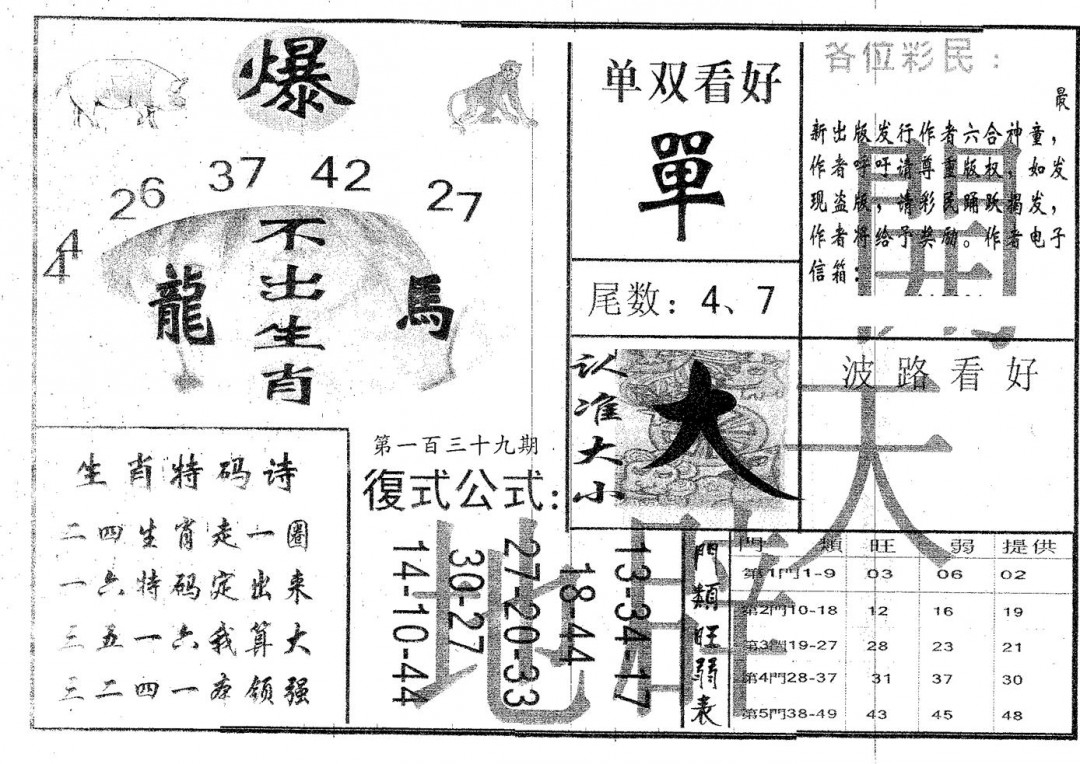 爆
26 37 42 27
44
不出生肖
龍 馬
生肖特码诗
二四生肖走一圈
一六特码定出来
三五一六我算大
三二四一亦领强
第一百三十九期
復式公式:
13-34-17
18-44
27-20-33
30-27
14-10-44
单双看好
單
尾数: 4、7
认准大小
大
各位彩民:
最
新出版发行作者六合神童,
作者呼吁请尊重版权, 如发
现盗版, 请彩民踊跃揭发,
作者将给予奖励。作者电子
信箱:
波路看好
天
地
門類旺弱表
門 類 旺 弱 提供
第1門1-9 03 06 02
第2門10-18 12 16 19
第3門19-27 28 23 21
第4門28-37 31 37 30
第5門38-49 43 45 48